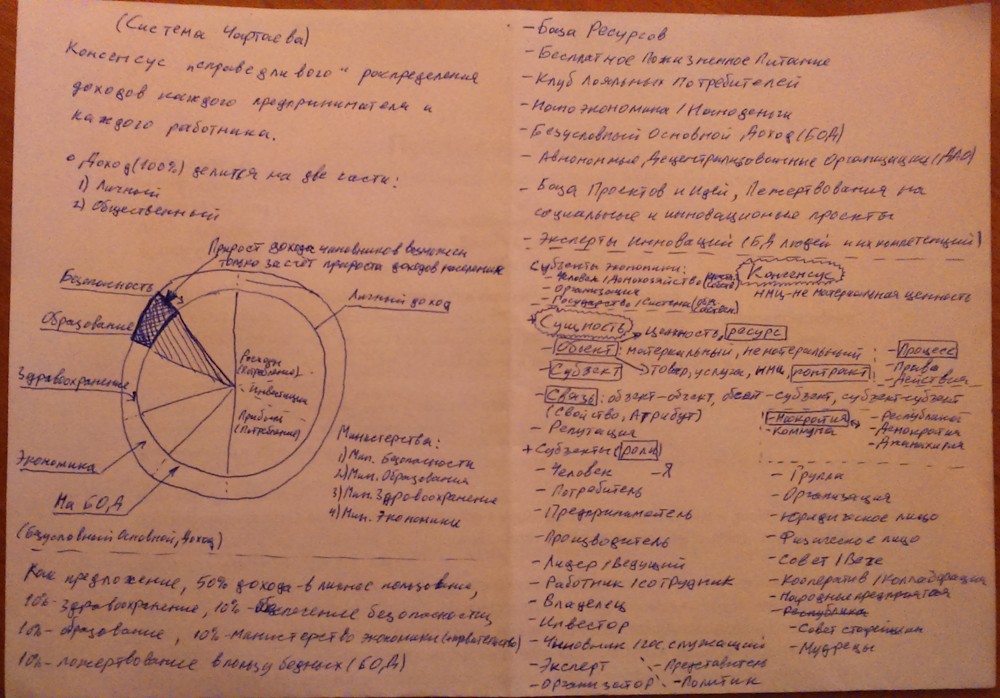 (Система Чартаева)
Консенсус "справедливого" распределения
доходов каждого предпринимателя и
каждого работника.
о Доход (100%) делится на две части:
1) Личный
2) Общественный
Прирост дохода чиновников возможен
только за счёт прироста доходов населения
Безопасность
Личный доход
Образование
Здравоохранение
Расходы
(потребление)
Инвестиции
Прибыль
(Потребление)
Экономика
На БОД
Министерства:
1) Мин. Безопасности
2) Мин. Образования
3) Мин. Здравоохранение
4) Мин. Экономики
(Безусловный Основной Доход)
Как предложение, 50% дохода - в личное пользование,
10% - Здравоохранение, 10% - Обеспечение безопасности,
10% - образование, 10% - Министерство экономики (правительство)
10% - пожертвование в пользу бедных (БОД)
- База Ресурсов
- Бесплатное Пожизненное Питание
- Клуб Лояльных Потребителей
- Наноэкономика / Наноденьги
- Безусловный Основной Доход (БОД)
- Автономные Децентрализованные Организации (ДАО)
- База Проектов и Идей, Пожертвования на
социальные и инновационые проекты
- Эксперты Инноваций (БД людей и их компетенций)
Субъекты экономики:
- Человек / Домохозяйство
- Организация
- Государство / Система
Консенсус
НМЦ - не материальная ценность
+ Сущность
Ценность, ресурс
- Объект: материальный, нематериальный
товар, услуга, НМЦ, контракт
- Субъект
- Процесс
- Права
- Действия
- Связь: объект-объект, объект-субъект, субъект-субъект
(Свойство, Атрибут)
- Репутация
- Коммуна
- Республика
- Демократия
+ Субъекты (роли)
- Человек - Я
- Потребитель
- Предприниматель
- Производитель
- Лидер / Ведущий
- Работник / сотрудник
- Владелец
- Инвестор
- Чиновник / гос. служащий
- Эксперт - Представитель
- Организатор - Политик
- Группа
- Организация
- Юридическое лицо
- Физическое лицо
- Совет / Вече
- Кооператив / Коллаборация
- Народные предприятия
- Республика
- Совет старейшин
- Мудрецы